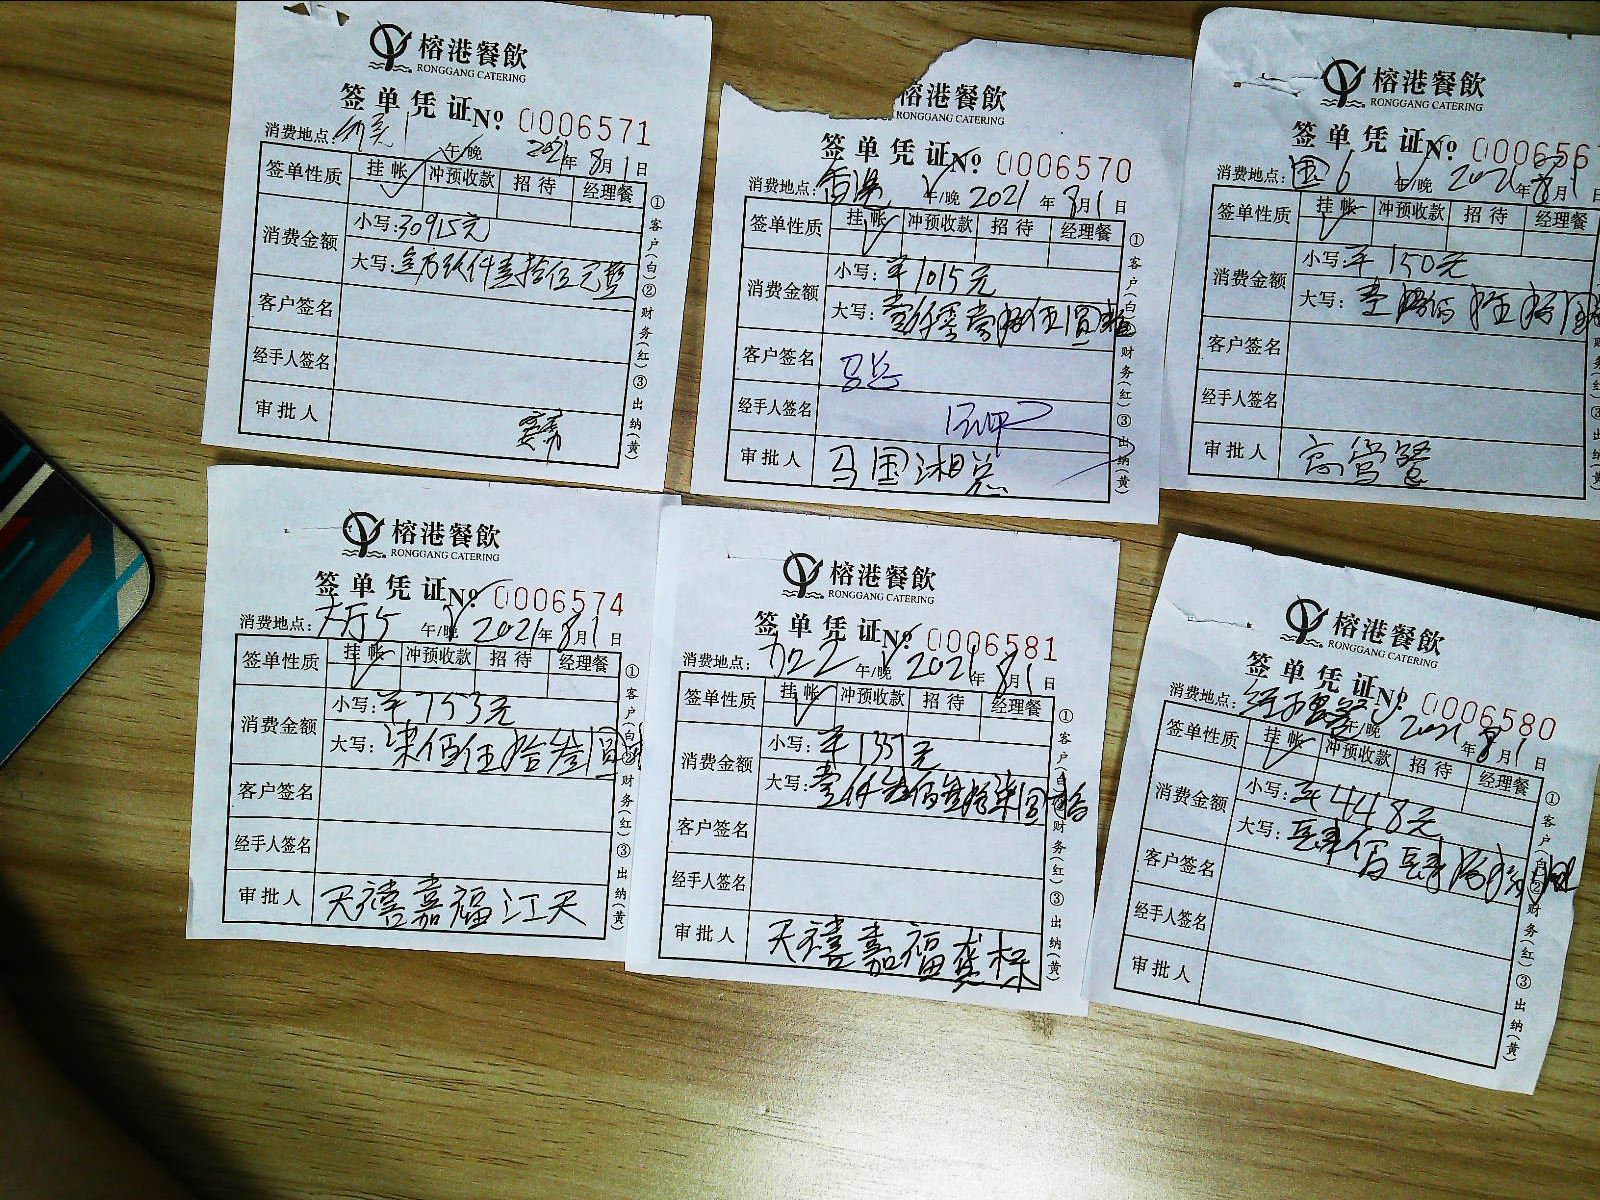 榕港餐飲
RONGGANG CATERING
签单凭证 № 0006571
消费地点: 午/晚 2021年8月1日
签单性质 挂帐 冲预收款 招待 经理餐
消费金额 小写:30915元
大写:叁万玖仟壹拾伍元整
客户签名
经手人签名
审批人
①客户(白)②财务(红)③出纳(黄)
榕港餐飲
RONGGANG CATERING
签单凭证 № 0006570
消费地点:香港 午/晚 2021年8月1日
签单性质 挂帐 冲预收款 招待 经理餐
消费金额 小写:¥1015元
大写:壹仟零壹拾伍圆整
客户签名
经手人签名
审批人 马国湘总
①客户(白)②财务(红)③出纳(黄)
榕港餐飲
RONGGANG CATERING
签单凭证 №
消费地点:国6 午/晚 2021年8月1日
签单性质 挂帐 冲预收款 招待 经理餐
消费金额 小写:¥150元
大写:壹佰伍拾圆
客户签名
经手人签名
审批人 高管餐
榕港餐飲
RONGGANG CATERING
签单凭证 № 0006574
消费地点:大厅5 午/晚 2021年8月1日
签单性质 挂帐 冲预收款 招待 经理餐
消费金额 小写:¥753元
大写:柒佰伍拾叁圆
客户签名
经手人签名
审批人 天禧嘉福江天
①客户(白)②财务(红)③出纳(黄)
榕港餐飲
RONGGANG CATERING
签单凭证 № 0006581
消费地点: 午/晚 2021年8月1日
签单性质 挂帐 冲预收款 招待 经理餐
消费金额 小写:¥1337元
大写:壹仟叁佰叁拾柒圆整
客户签名
经手人签名
审批人 天禧嘉福龚栎
①客户(白)②财务(红)③出纳(黄)
榕港餐飲
RONGGANG CATERING
签单凭证 № 0006580
消费地点:经理餐 午/晚 2021年8月1日
签单性质 挂帐 冲预收款 招待 经理餐
消费金额 小写:¥448元
大写:肆佰肆拾捌圆
客户签名
经手人签名
审批人
①客户(白)②财务(红)③出纳(黄)